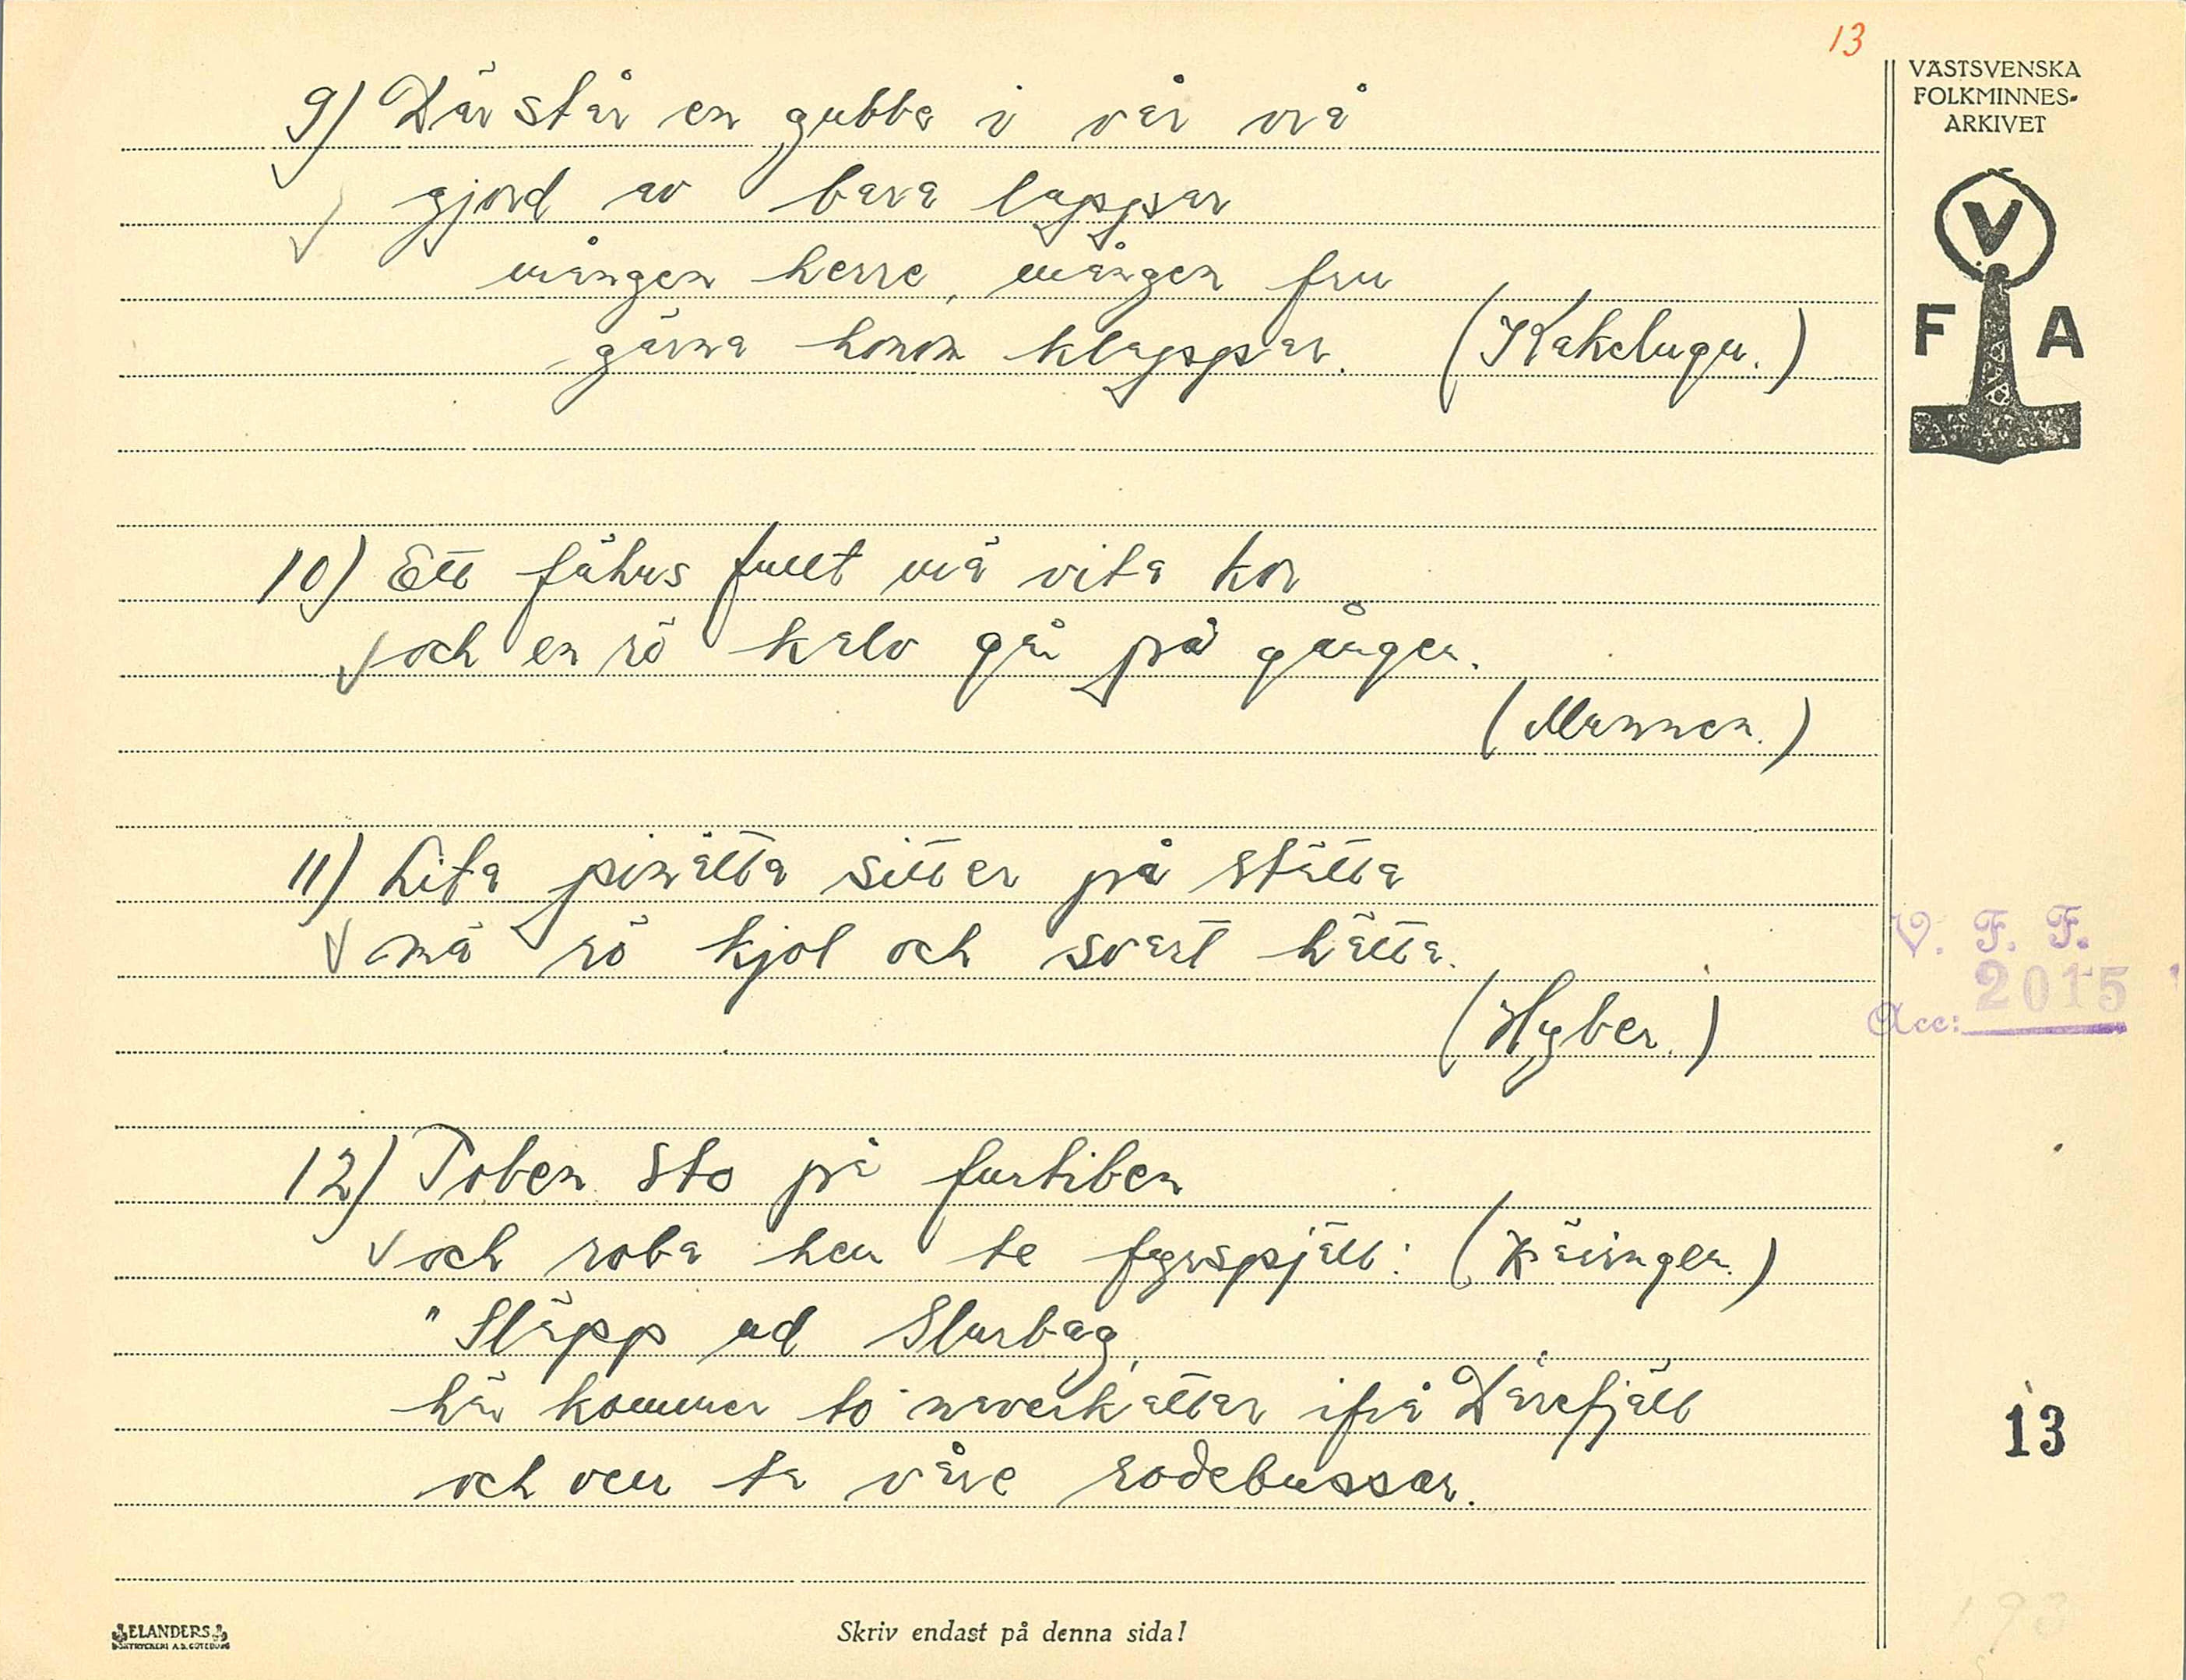 13
VÄSTSVENSKA
FOLKMINNES-
ARKIVET
V
F A
9) Där står en gubbe i vår vrå
gjord av bara lappar
mången herre, mången fru
gärna honom klappar. (Kakelugn.)
10) Ett fähus fullt mä vita kor
och en rö kalv går på gången.
(Munnen.)
11) Lita pinätta sitter på stätta
mä rö kjol och svart hätta.
(Hyber.)
12) Toben sto på furtiben
och roba hen te fyrspjäll: (Käringen.)
"Släpp ud Slurbag,
här kommer to naverkattar ifrå Dårefjäll
och veu ta våre rodebussar.
V. F. F.
Acc: 2015
13
ELANDERS
BOKTRYCKERI A.B. GÖTEBORG
Skriv endast på denna sida!